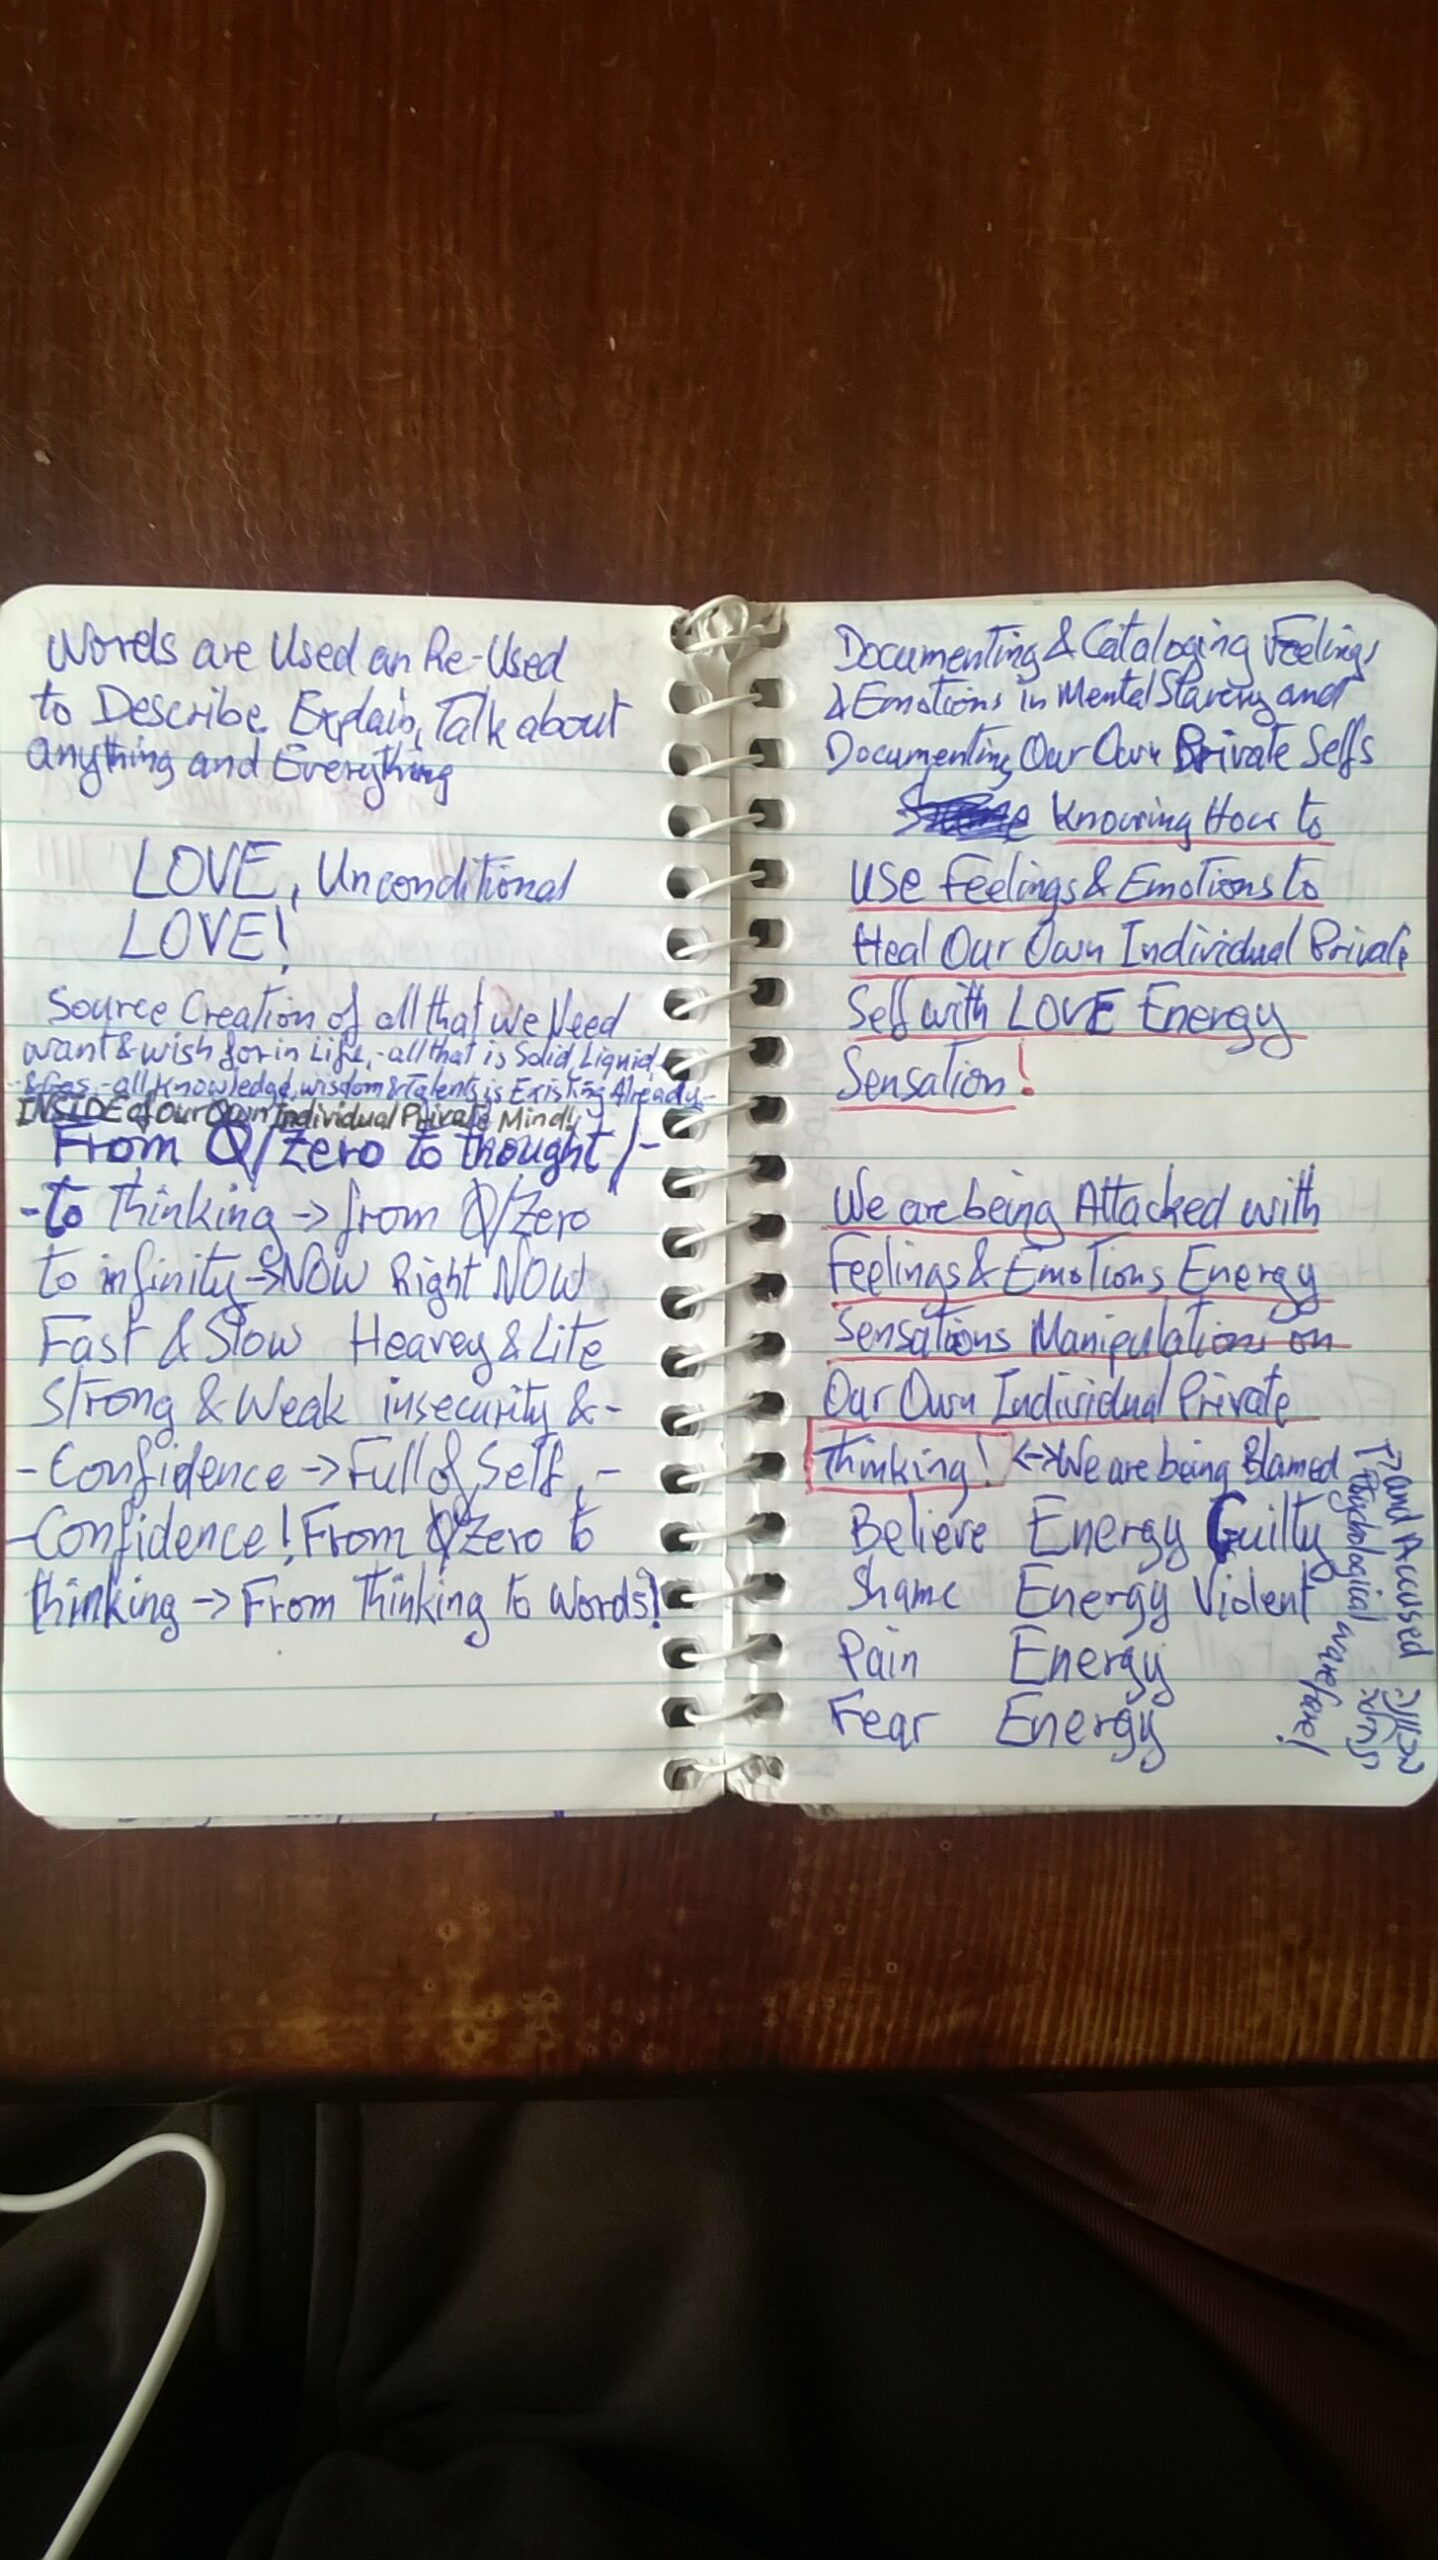 Words are Used an Re-Used
to Describe, Explain, Talk about
Anything and Everything
LOVE, Unconditional
LOVE!
Source Creation of all that we Need
want & wish for in Life,- all that is Solid, Liquid
& Gas,- all knowledge, wisdom & Talents is Existing Already-
INSIDE of Our Own Individual Private Mind!
From Ø/Zero to thought /-
-to thinking -> from Ø/Zero
to infinity -> NOW Right NOW
Fast & Slow Heavey & Lite
Strong & Weak insecurity &-
-Confidence -> Full of Self,-
-Confidence! From Ø/Zero to
thinking -> From Thinking to Words!
Documenting & Cataloging Feelings
& Emotions in Mental Slavery and
Documenting Our Own Private Selfs
Knowing How to
USE Feelings & Emotions to
Heal Our Own Individual Private
Self with LOVE Energy
Sensation!
We are being Attacked with
Feelings & Emotions Energy
Sensations Manipulations on
Our Own Individual Private
Thinking! <-> We are being Blamed
and Accused
Believe Energy Guilty
Shame Energy Violent
Pain Energy
Fear Energy
Psychological warefare!